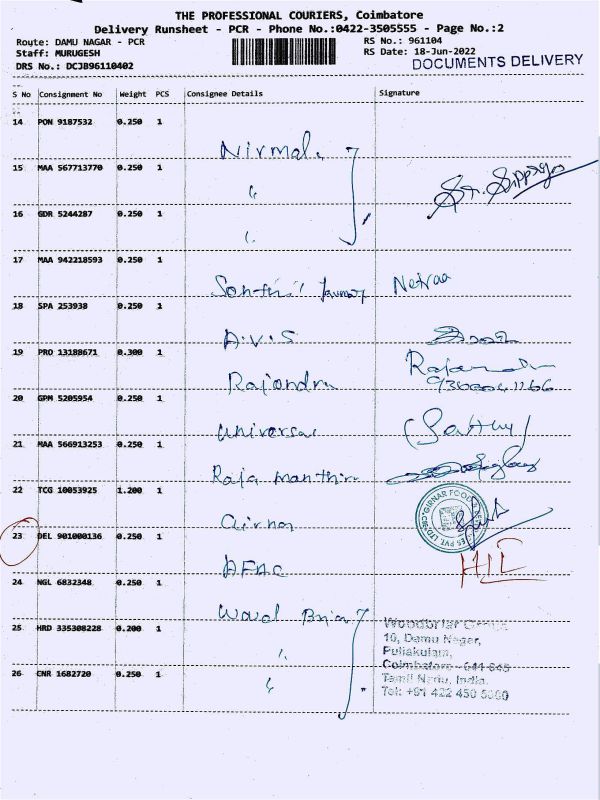 THE PROFESSIONAL COURIERS, Coimbatore
Delivery Runsheet - PCR - Phone No.:0422-3505555 - Page No.:2
Route: DAMU NAGAR - PCR
RS No.: 961104
Staff: MURUGESH
RS Date: 18-Jun-2022
DRS No.: DCJB96110402
DOCUMENTS DELIVERY
S No Consignment No Weight PCS Consignee Details Signature
14 PON 9187532 0.250 1
Nirmala
15 MAA 567713770 0.250 1
16 GDR 5244287 0.250 1
17 MAA 942218593 0.250 1
Netraa
18 SPA 253938 0.250 1
A.V.S
19 PRO 13188671 0.300 1
Rajendra
20 GPM 5205954 0.250 1
Universal
21 MAA 566913253 0.250 1
Raja
22 TCG 10053925 1.200 1
Girnar
GIRNAR FOOD
23 DEL 901000136 0.250 1
AFAC
24 NGL 6832348 0.250 1
25 HRD 335308228 0.200 1
Woodbriar
10, Damu Nagar,
Puliakulam,
26 CNR 1682720 0.250 1
Coimbatore - 641 045
Tamil Nadu, India.
Tel: +91 422 450 5000